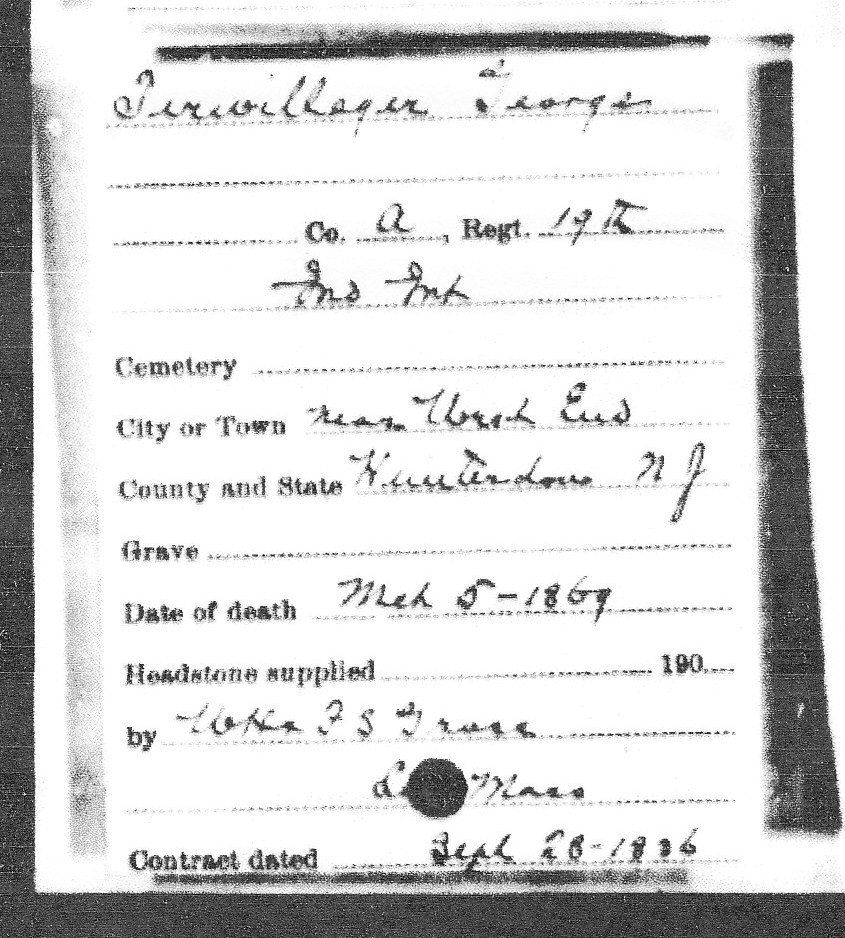 Terwillager George
Co. A, Regt. 19th
Ind Inf
Cemetery
City or Town near West End
County and State Hunterdon N J
Grave
Date of death Mch 5-1869
Headstone supplied 190
by
Mass
Contract dated Sept 28-1886